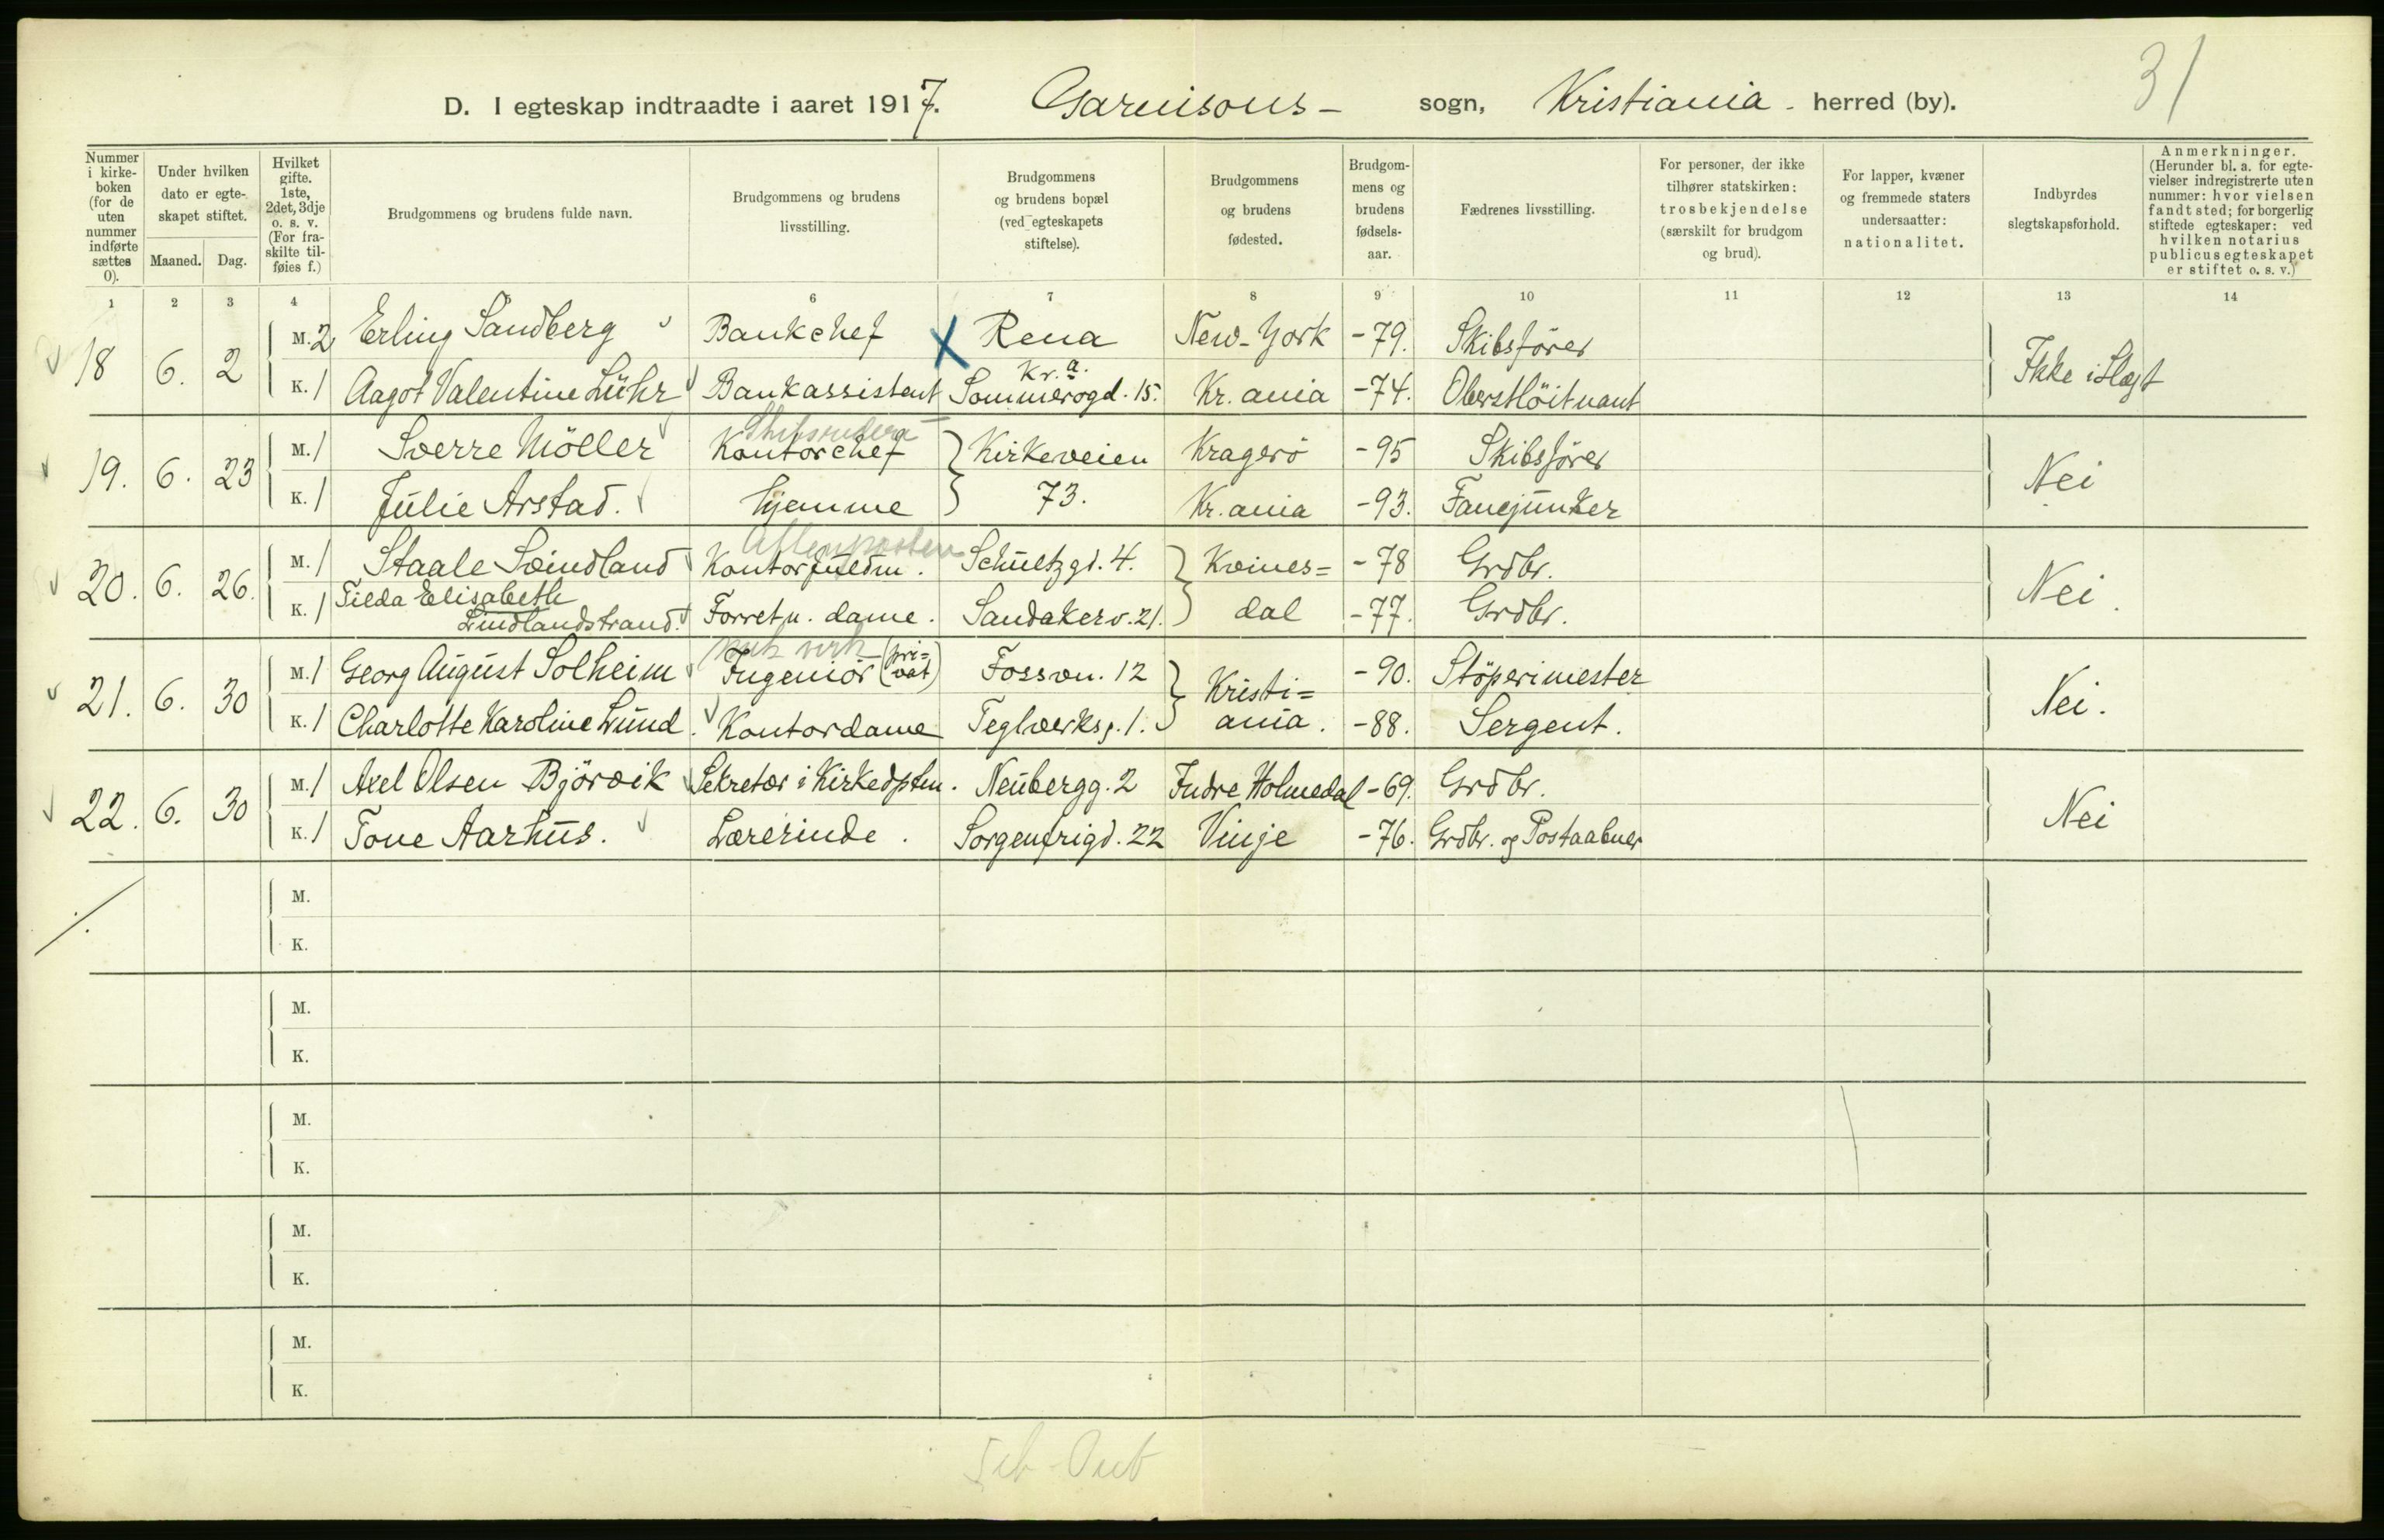 31
D. I egteskap indtraadte i aaret 1917. Garnisons- sogn, Kristiania - herred (by).
Nummer i kirkeboken (for de uten nummer indførte sættes 0).
Under hvilken dato er egteskapet stiftet.
Maaned. Dag.
Hvilket gifte. 1ste, 2det, 3dje o. s. v. (For fraskilte tilføies f.)
Brudgommens og brudens fulde navn.
Brudgommens og brudens livsstilling.
Brudgommens og brudens bopæl (ved egteskapets stiftelse).
Brudgommens og brudens fødested.
Brudgommens og brudens fødselsaar.
Fædrenes livsstilling.
For personer, der ikke tilhører statskirken: trosbekjendelse (særskilt for brudgom og brud).
For lapper, kvæner og fremmede staters undersaatter: nationalitet.
Indbyrdes slegtskapsforhold.
Anmerkninger. (Herunder bl. a. for egtevielser indregistrerte uten nummer: hvor vielsen fandt sted; for borgerlig stiftede egteskaper: ved hvilken notarius publicus egteskapet er stiftet o. s. v.)
1 2 3 4 6 7 8 9 10 11 12 13 14
18 6. 2 M. 2 Erling Sandberg Bankchef X Rena New-York -79. Skibsfører Ikke i Slægt
K. 1 Aagot Valentine Lühr Bankassistent Kr.a. Sommerogd. 15. Kr.ania -74. Oberstlöitnant
19. 6. 23 M. 1 Sverre Möller Kontorchef Kirkeveien 73. Kragerö -95 Skibsfører Nei
K. 1 Julie Arstad. Hjemme Kr.ania -93. Fanejunker
20. 6. 26. M. 1 Staale Svindland Aftenposten Kontorfuldm. Schultzgd. 4. Kvines= -78 Grdbr. Nei.
K. 1 Tilda Elisabeth Lindlandstrand. Forretn. dame. Sandakerv. 21. dal -77. Grdbr.
21. 6. 30 M. 1 Georg August Solheim Ingeniör (pri=vat) Fossvn. 12 Kristi= -90. Stöperimester Nei.
K. 1 Charlotte Karoline Lund. Kontordame Teglverksg. 1. ania. -88. Sergent.
22. 6. 30 M. 1 Axel Olsen Björvik Sekretær i Kirkedptm. Neubergg. 2 Indre Holmedal -69. Grdbr. Nei
K. 1 Tone Aarhus. Lærerinde. Sorgenfrigd. 22 Vinje -76. Grdbr. og Postaabner
M.
K.
M.
K.
M.
K.
M.
K.
M.
K.